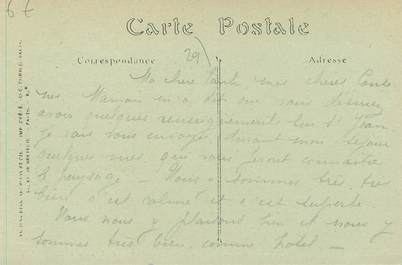 67
Carte Postale
29)
Correspondance
Adresse
Ma chère mes chères
Maman m'a dit que vous désiriez
avoir quelques renseignements sur St Jean
Je vais vous envoyer durant mon séjour
quelques vues qui vous feront connaître
le paysage — Nous y sommes très très
bien, c'est calme et c'est superbe
Nous nous y plaisons bien et nous y
sommes très bien comme hôtel —